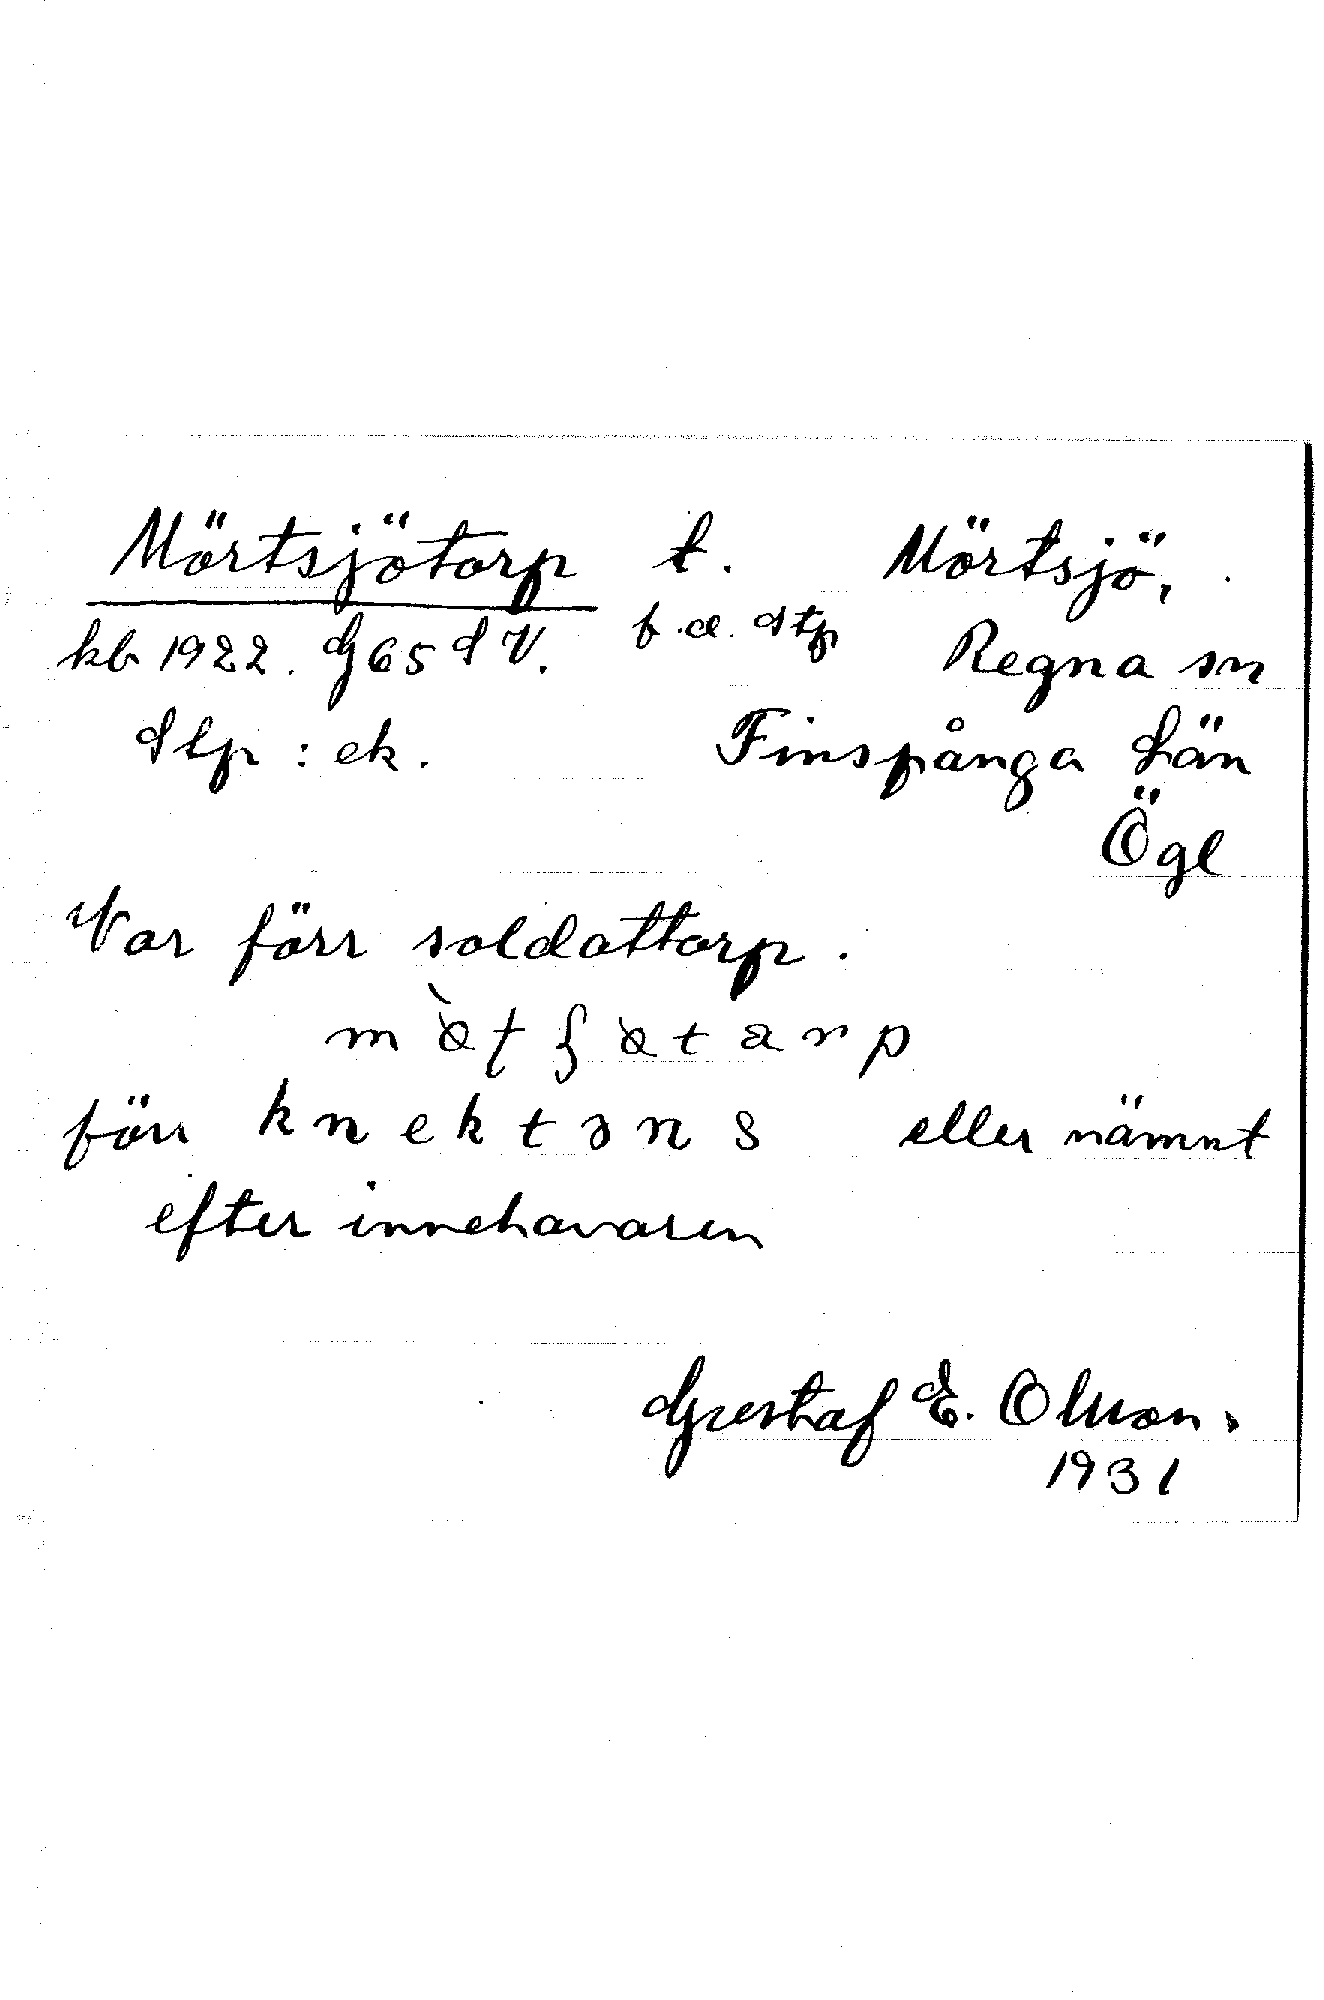 Mörtsjötorp t. Mörtsjö,
kb 1922. G65SV. f.d. stp Regna sn
Slp: ek. Finspånga Län
Ögl
Var förr soldattorp.
förr knektəns eller nämnt
efter innehavaren
Gustaf E. Olsson.
1931